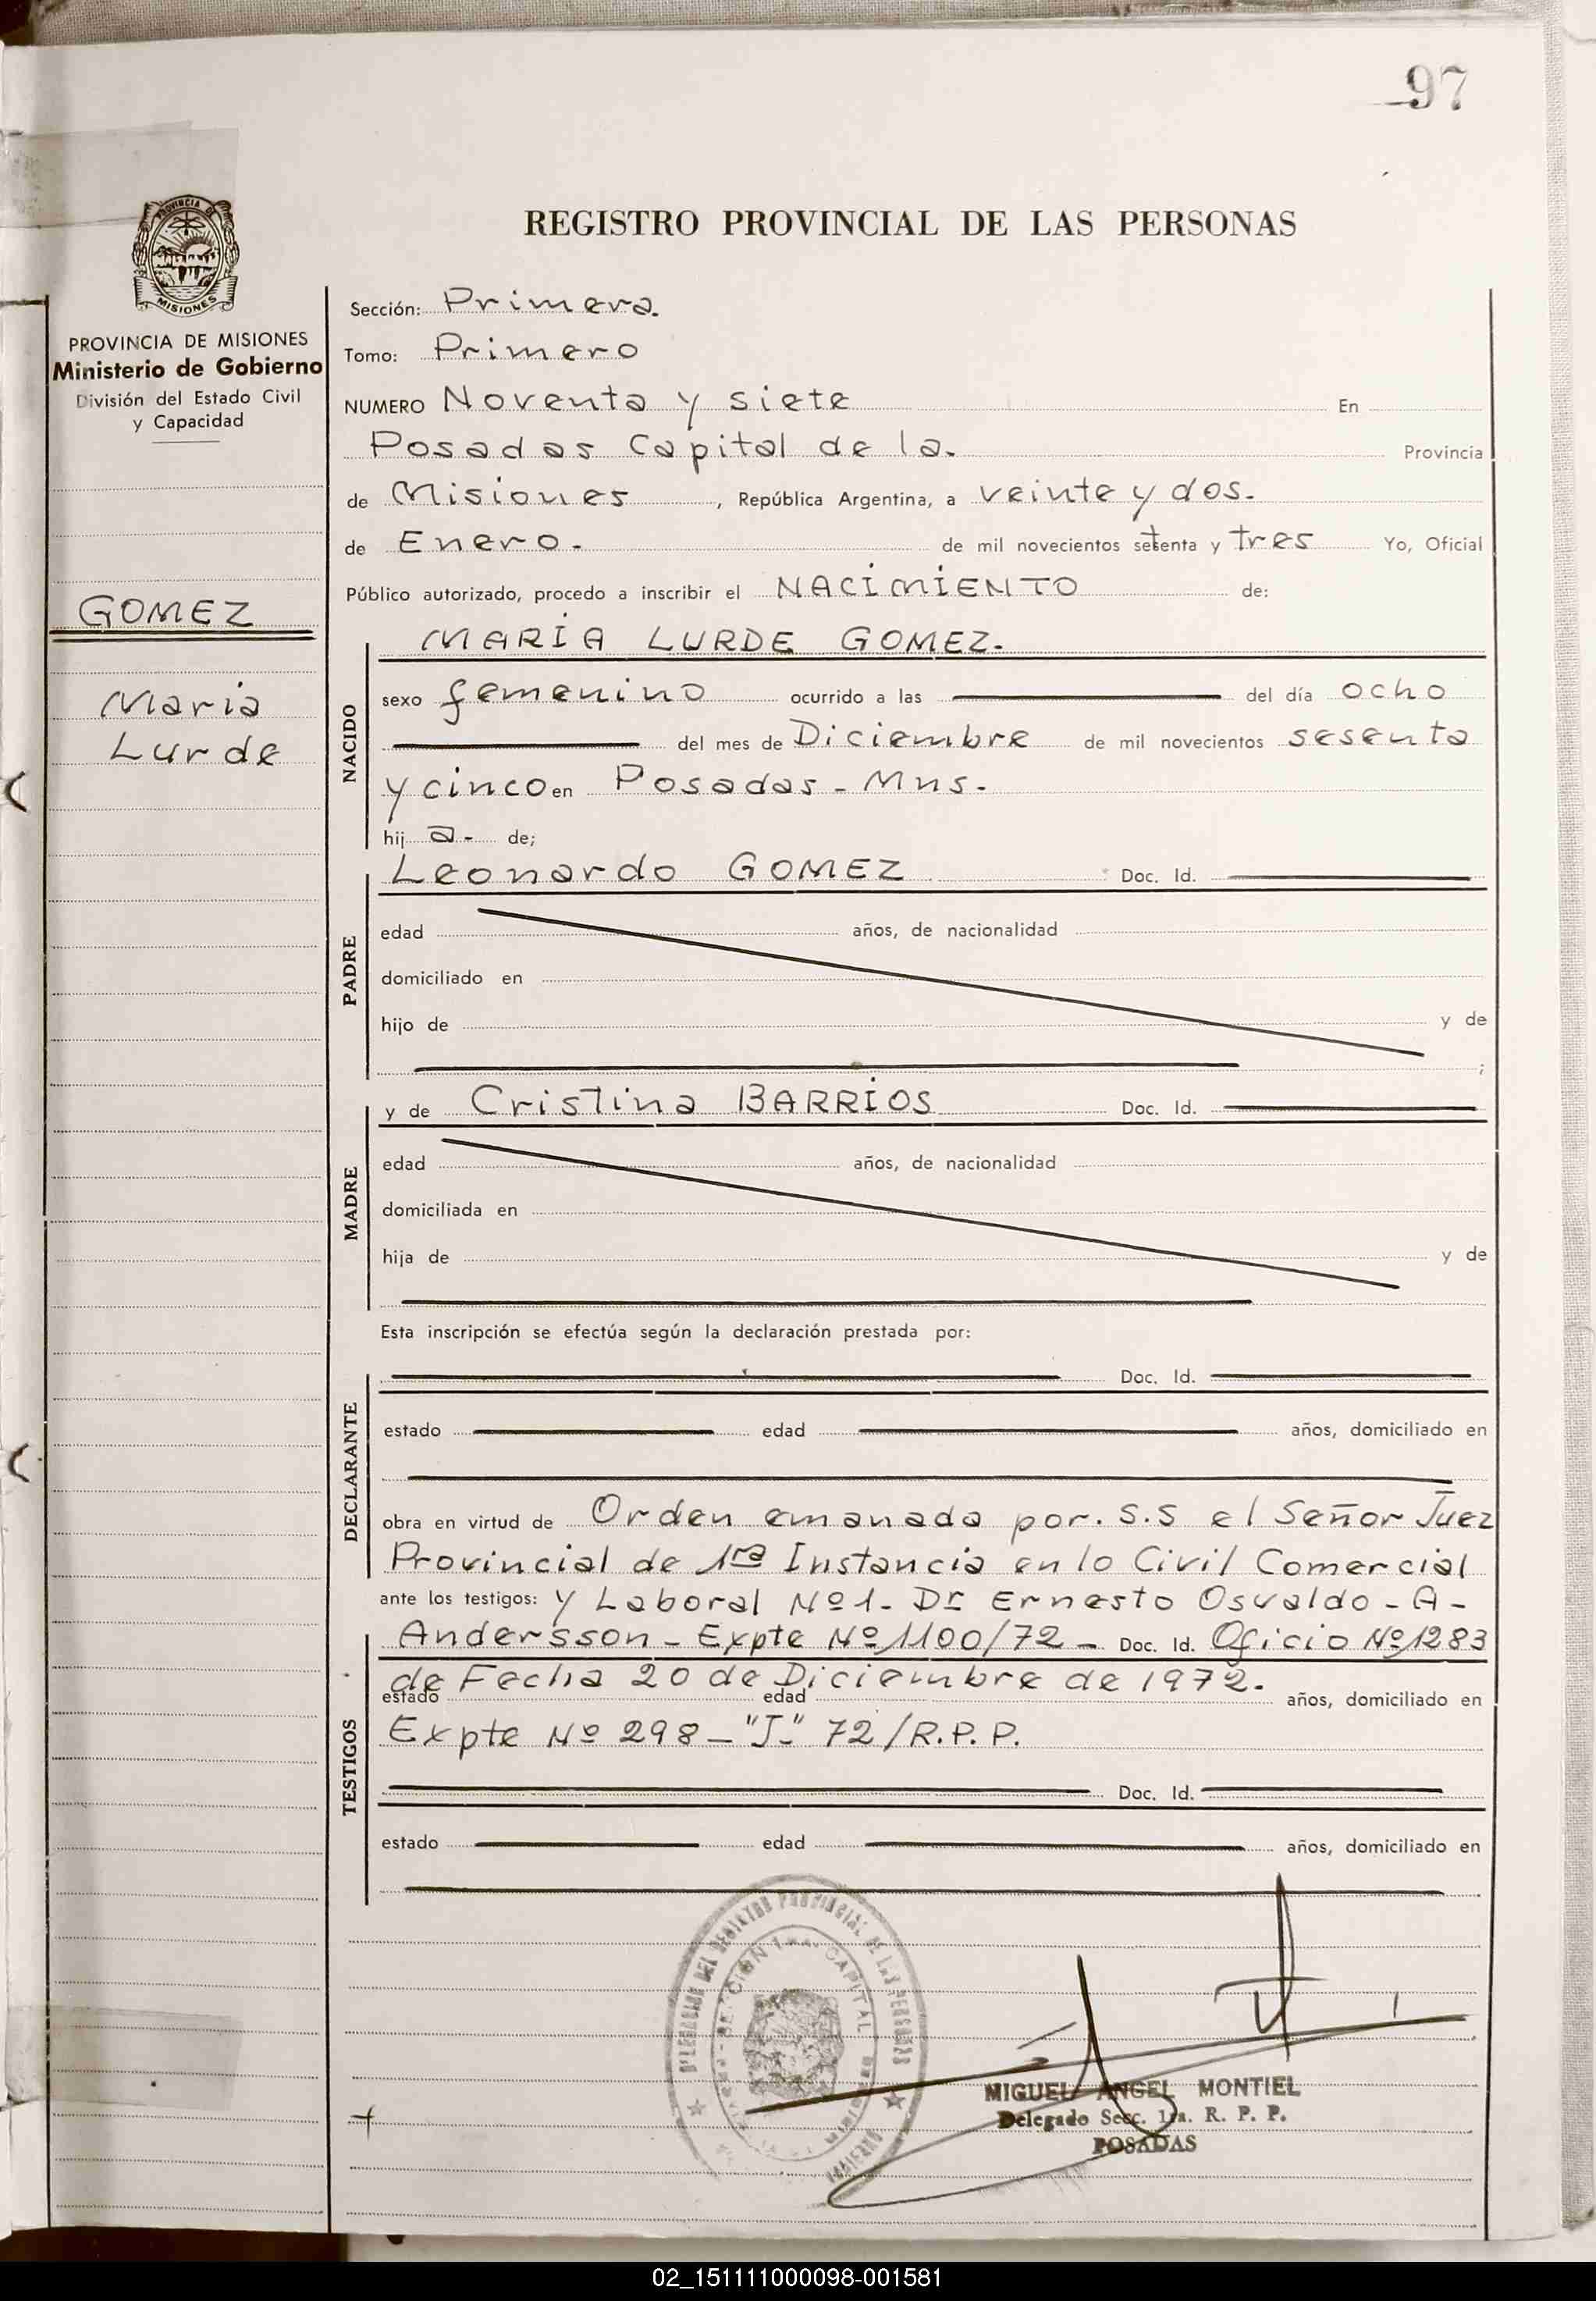 97
PROVINCIA DE
MISIONES
PROVINCIA DE MISIONES
Ministerio de Gobierno
División del Estado Civil
y Capacidad
GOMEZ
Maria
Lurde
REGISTRO PROVINCIAL DE LAS PERSONAS
Sección: Primera.
Tomo: Primero
NUMERO Noventa y siete En
Posadas Capital de la. Provincia
de Misiones, República Argentina, a veinte y dos.
de Enero. de mil novecientos setenta y tres Yo, Oficial
Público autorizado, procedo a inscribir el NACIMIENTO de:
NACIDO
MARIA LURDE GOMEZ.
sexo femenino ocurrido a las del día ocho
del mes de Diciembre de mil novecientos sesenta
y cinco en Posadas - Mns.
hij a- de;
PADRE
Leonardo GOMEZ Doc. Id.
edad años, de nacionalidad
domiciliado en
hijo de y de
;
MADRE
y de Cristina BARRIOS Doc. Id.
edad años, de nacionalidad
domiciliada en
hija de y de
Esta inscripción se efectúa según la declaración prestada por:
DECLARANTE
Doc. Id.
estado edad años, domiciliado en
obra en virtud de Orden emanada por. S.S el Señor Juez
Provincial de 1ra Instancia en lo Civil Comercial
ante los testigos: y Laboral Nº1- Dr Ernesto Osvaldo - A -
TESTIGOS
Andersson - Expte Nº 1100/72 - Doc. Id. Oficio Nº 1283
de Fecha 20 de Diciembre de 1972.
estado edad años, domiciliado en
Expte Nº 298 - "J-" 72/R.P.P.
Doc. Id.
estado edad años, domiciliado en
DELEGACION DEL REGISTRO PROVINCIAL DE LAS PERSONAS
SECCION 1ra. CAPITAL
MIGUEL ANGEL MONTIEL
Delegado Secc. 1ra. R. P. P.
POSADAS
02_151111000098-001581